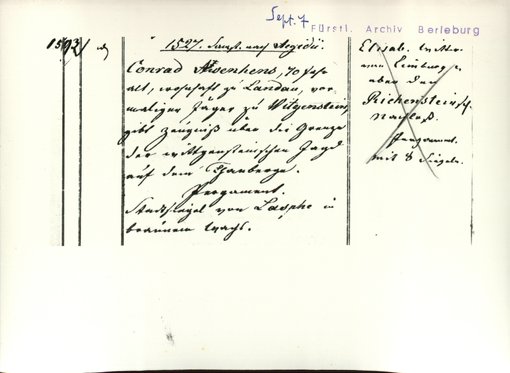 Sept. 7
Fürstl. Archiv Berleburg
1527. Samst. nach Aegidii.
Conrad Asenhens, 70 Jahr
alt, wohnhaft zu Landau, vor-
maliger Jäger zu Witgenstein,
gibt Zeugniß über die Grenze
der wittgensteinischen Jagd
auf dem
Pergament.
Stadtsiegel von Laasphe in
braunem Wachs.
Elisab. Wittwe
von Limburg
über den
Richenstein
Nachlaß.
Pergament.
mit 8 Siegeln.